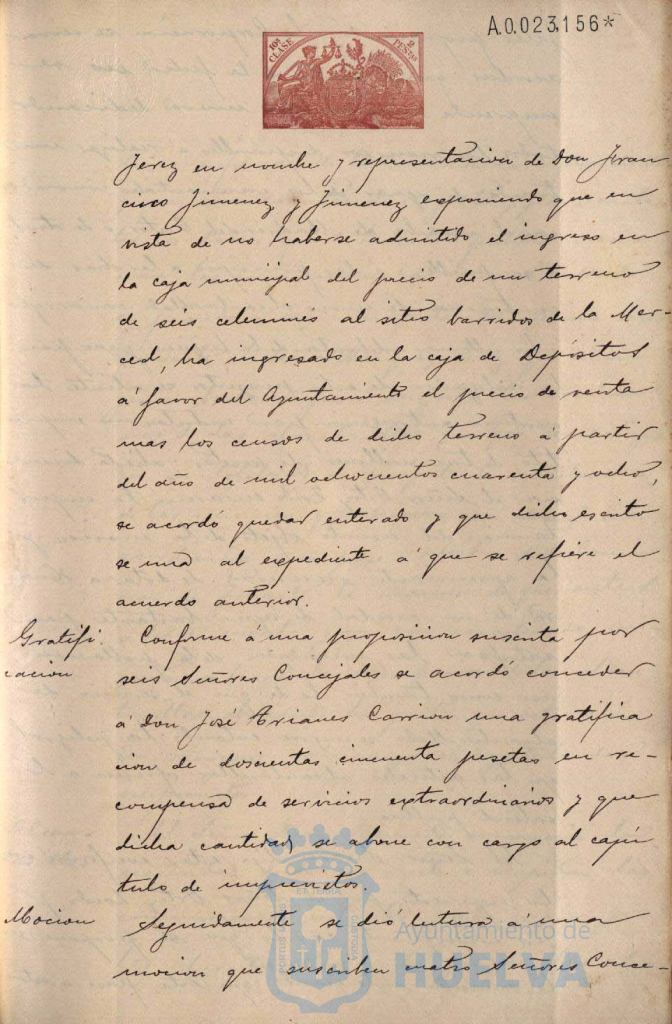 A.0.023,156*
10ª CLASE
2 PESETAS
Jerez en nombre y representacion de Don Fran
cisco Jimenez y Jimenez exponiendo que en
vista de no haberse admitido el ingreso en
la caja municipal del precio de un terreno
de seis celemines al sitio barridos de la Mer-
ced, ha ingresado en la caja de Depósitos
á favor del Ayuntamiento el precio de venta
mas los censos de dicho terreno á partir
del año de mil ochocientos cuarenta y ocho,
se acordó quedar enterado y que dicho escrito
se una al expediente á que se refiere el
acuerdo anterior.
Gratifi
cacion
Conforme á una proposicion suscrita por
seis Señores Concejales se acordó conceder
á Don José Trianes Carrion una gratifica
cion de doscientas cincuenta pesetas en re-
compensa de servicios extraordinarios y que
dicha cantidad se abone con cargo al capi
tulo de imprevistos.
Mocion
Seguidamente se dió lectura á una
mocion que suscriben cuatro Señores Conce-
Ayuntamiento de
HUELVA